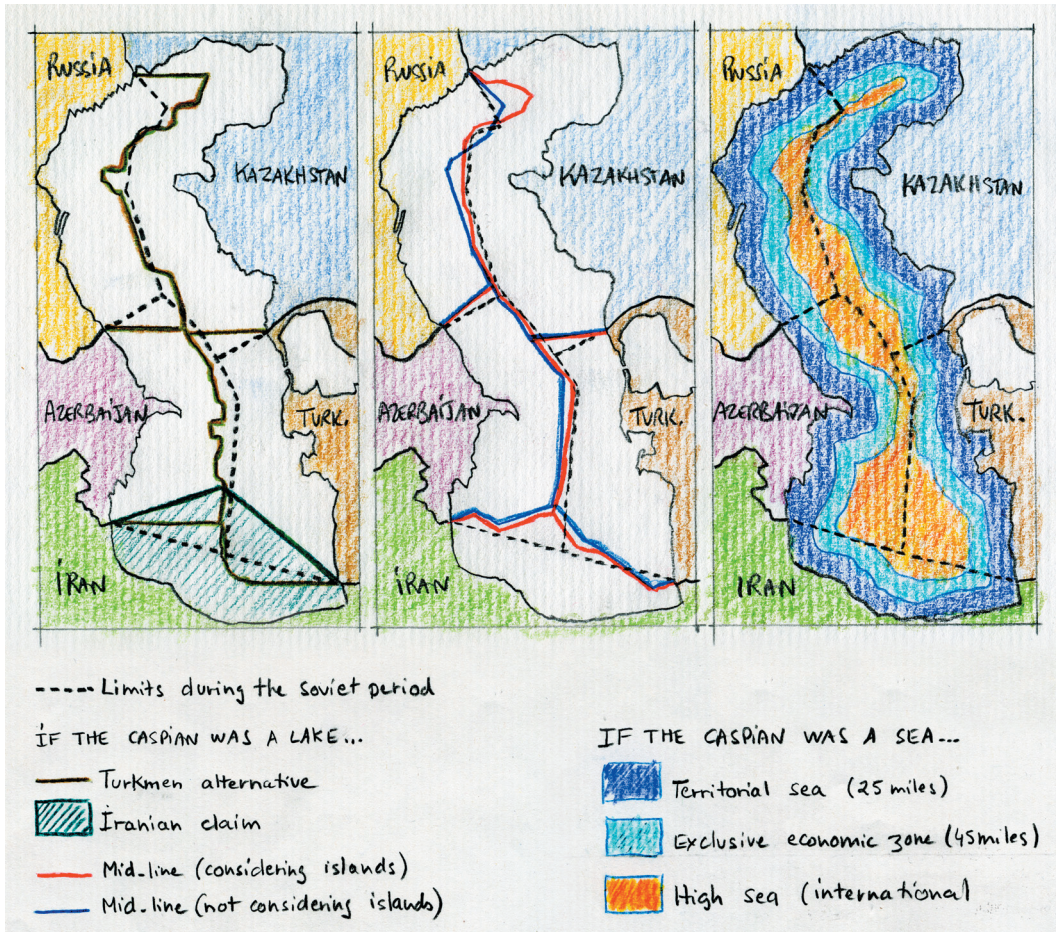 RUSSIA
KAZAKHSTAN
AZERBAIJAN
TURK.
İRAN
RUSSIA
KAZAKHSTAN
AZERBAIJAN
TURK.
İRAN
RUSSIA
KAZAKHSTAN
AZERBAIJAN
TURK.
IRAN
Limits during the soviet period
İF THE CASPİAN WAS A LAKE...
Turkmen alternative
İranian claim
Mid-line (considering islands)
Mid-line (not considering islands)
IF THE CASPIAN WAS A SEA...
Territorial sea (25 miles)
Exclusive economic zone (45 miles)
High sea (international